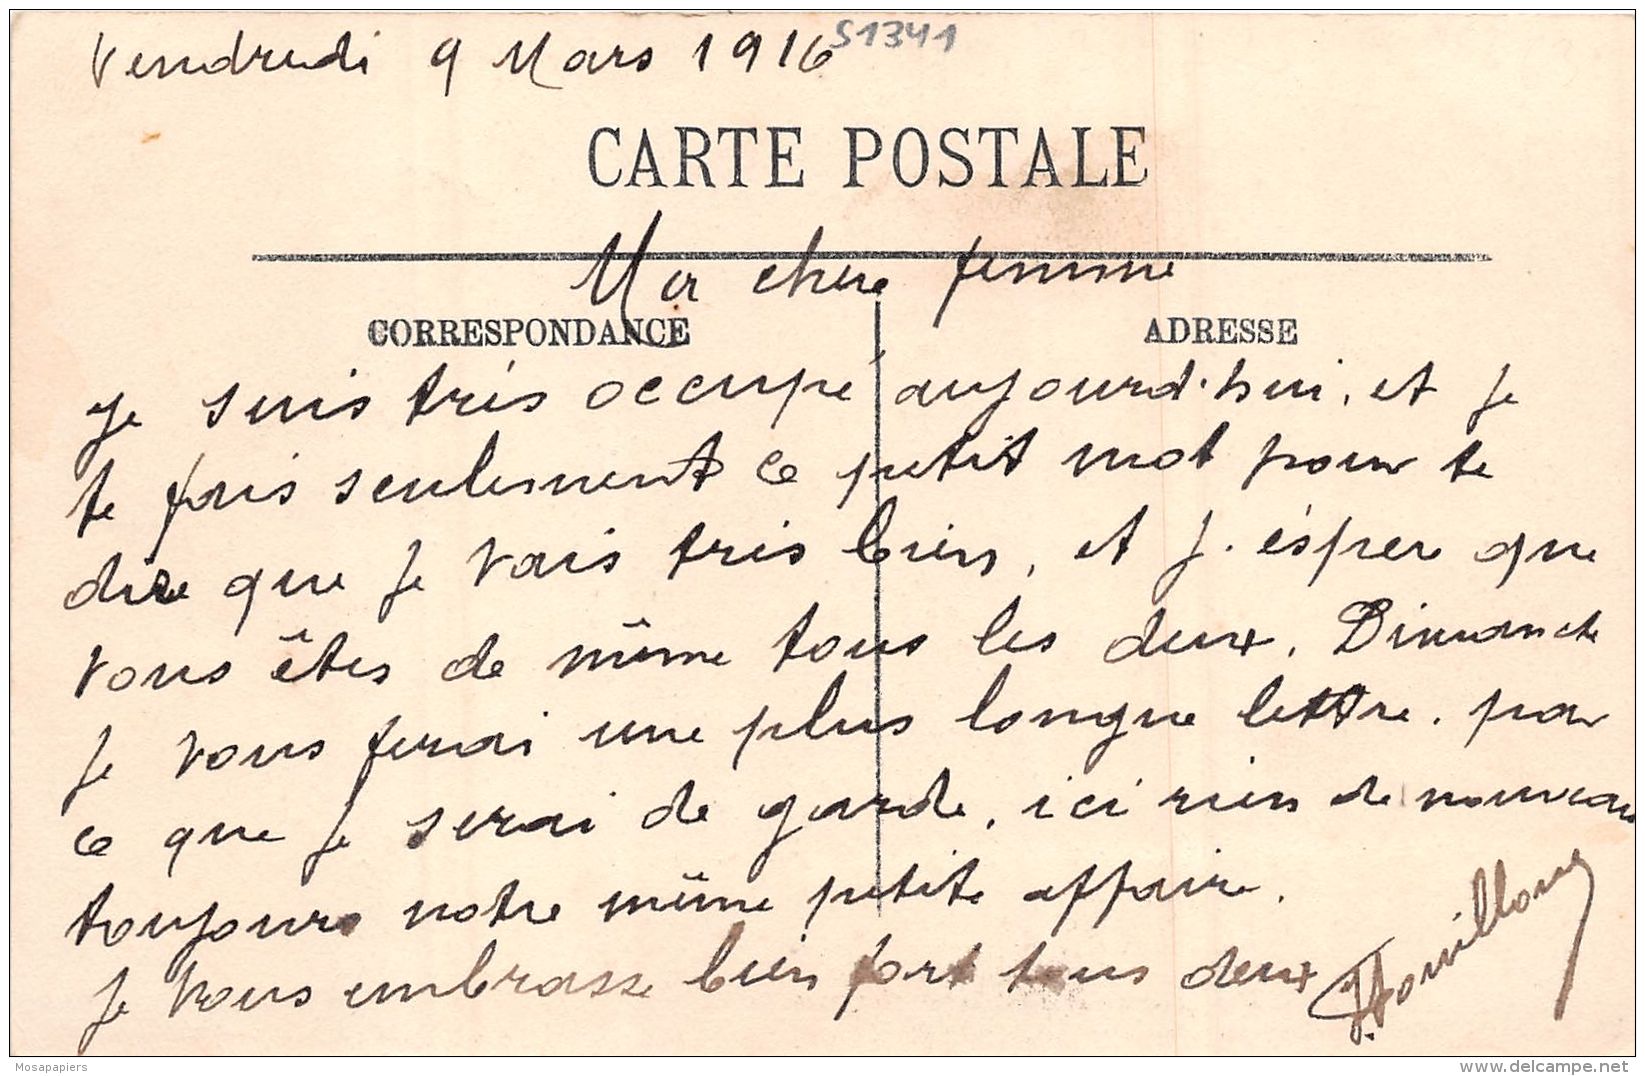 Vendredi 9 Mars 1916 51341
CARTE POSTALE
Ma chere femme
CORRESPONDANCE ADRESSE
Je suis trés occupé aujourd'hui, et je
te fais seulement ce petit mot pour te
dire que je vais tres bien, et j'éspere que
vous êtes de même tous les deux. Dimanche
je vous ferai une plus longue lettre. par
ce que je serai de garde, ici rien de nouveau
toujours notre même petite affaire.
Je vous embrasse bien fort tous deux
Mosapapiers
delcampe.net